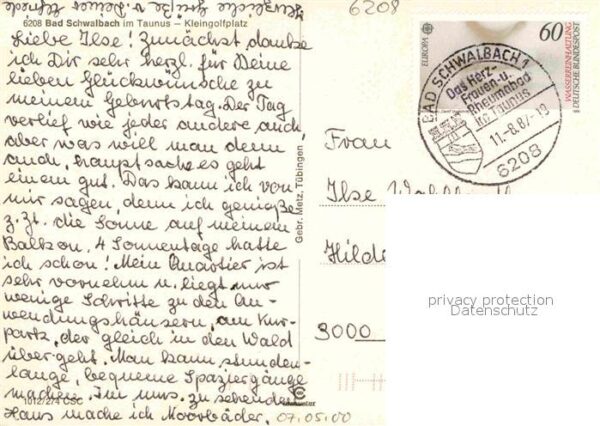 Herzliche Grüße
6208
6208 Bad Schwalbach im Taunus – Kleingolfplatz
Liebe Ilse! Zunächst danke
ich Dir sehr herzl. für Deine
lieben Glückwünsche zu
meinem Geburtstag. Der Tag
verlief wie jeder andere auch
aber was will man denn
auch, hauptsache es geht
einem gut. Das kann ich von
mir sagen, denn ich genieße
z. Zt. die Sonne auf meinem
Balkon. 4 Sonnentage hatte
ich schon! Mein Quartier ist
sehr vornehm u. liegt nur
wenige Schritte zu den An-
wendungshäusern, am Kur-
park, der gleich in den Wald
über geht. Man kann stunden-
lange, bequeme Spaziergänge
machen. Im uns. zu sehenden
Haus mache ich Moorbäder.
1012/274 CSC
07.05.00
Gebr. Metz, Tübingen
EUROPA
60
WASSERREINHALTUNG
DEUTSCHE BUNDESPOST
BAD SCHWALBACH 1
Das Herz-
Frauen-u.
Rheumabad
im Taunus
11.-8.87-18
6208
Frau
Ilse
Hild
3000
privacy protection
Datenschutz